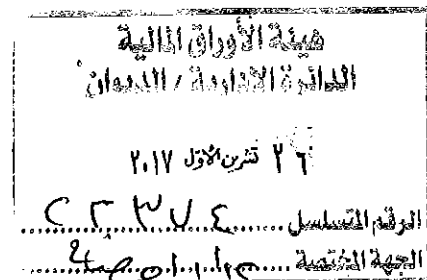 هيئة الأوراق المالية
الدائرة الإدارية / الديوان
٢٦ تشرين الأول ٢٠١٧
الرقم المتسلسل
الجهة المختصة